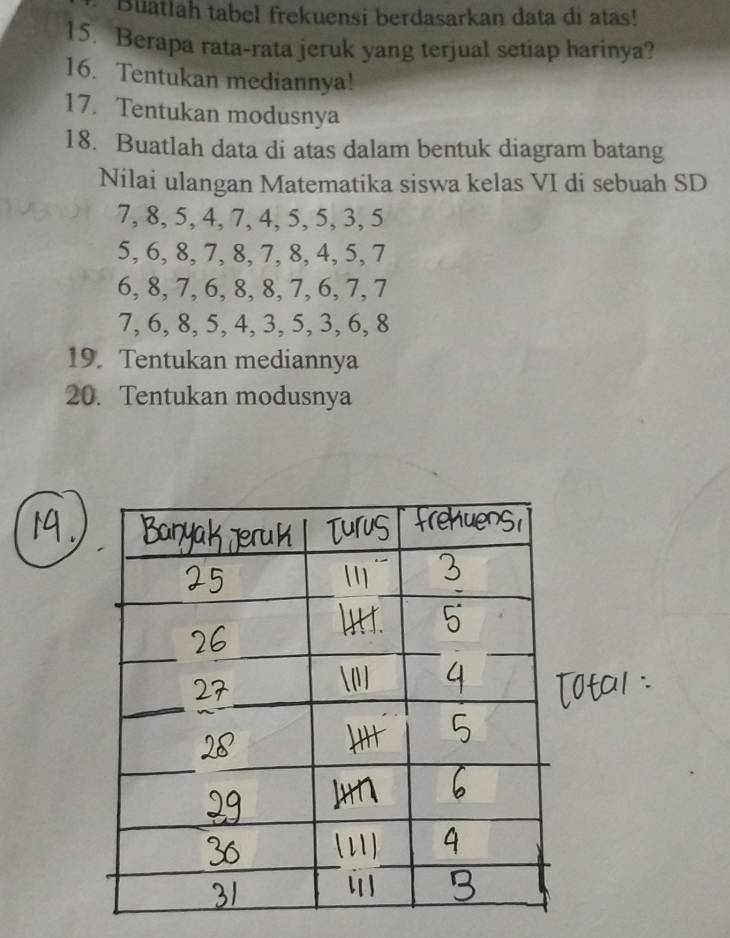 Buatlah tabel frekuensi berdasarkan data di atas!
15. Berapa rata-rata jeruk yang terjual setiap harinya?
16. Tentukan mediannya!
17. Tentukan modusnya
18. Buatlah data di atas dalam bentuk diagram batang
Nilai ulangan Matematika siswa kelas VI di sebuah SD
7, 8, 5, 4, 7, 4, 5, 5, 3, 5
5, 6, 8, 7, 8, 7, 8, 4, 5, 7
6, 8, 7, 6, 8, 8, 7, 6, 7, 7
7, 6, 8, 5, 4, 3, 5, 3, 6, 8
19. Tentukan mediannya
20. Tentukan modusnya
14. Banyak Jeruk Turus frekuensi
25 3
26 5
27 4
Total:
28 5
29 6
30 4
31 3